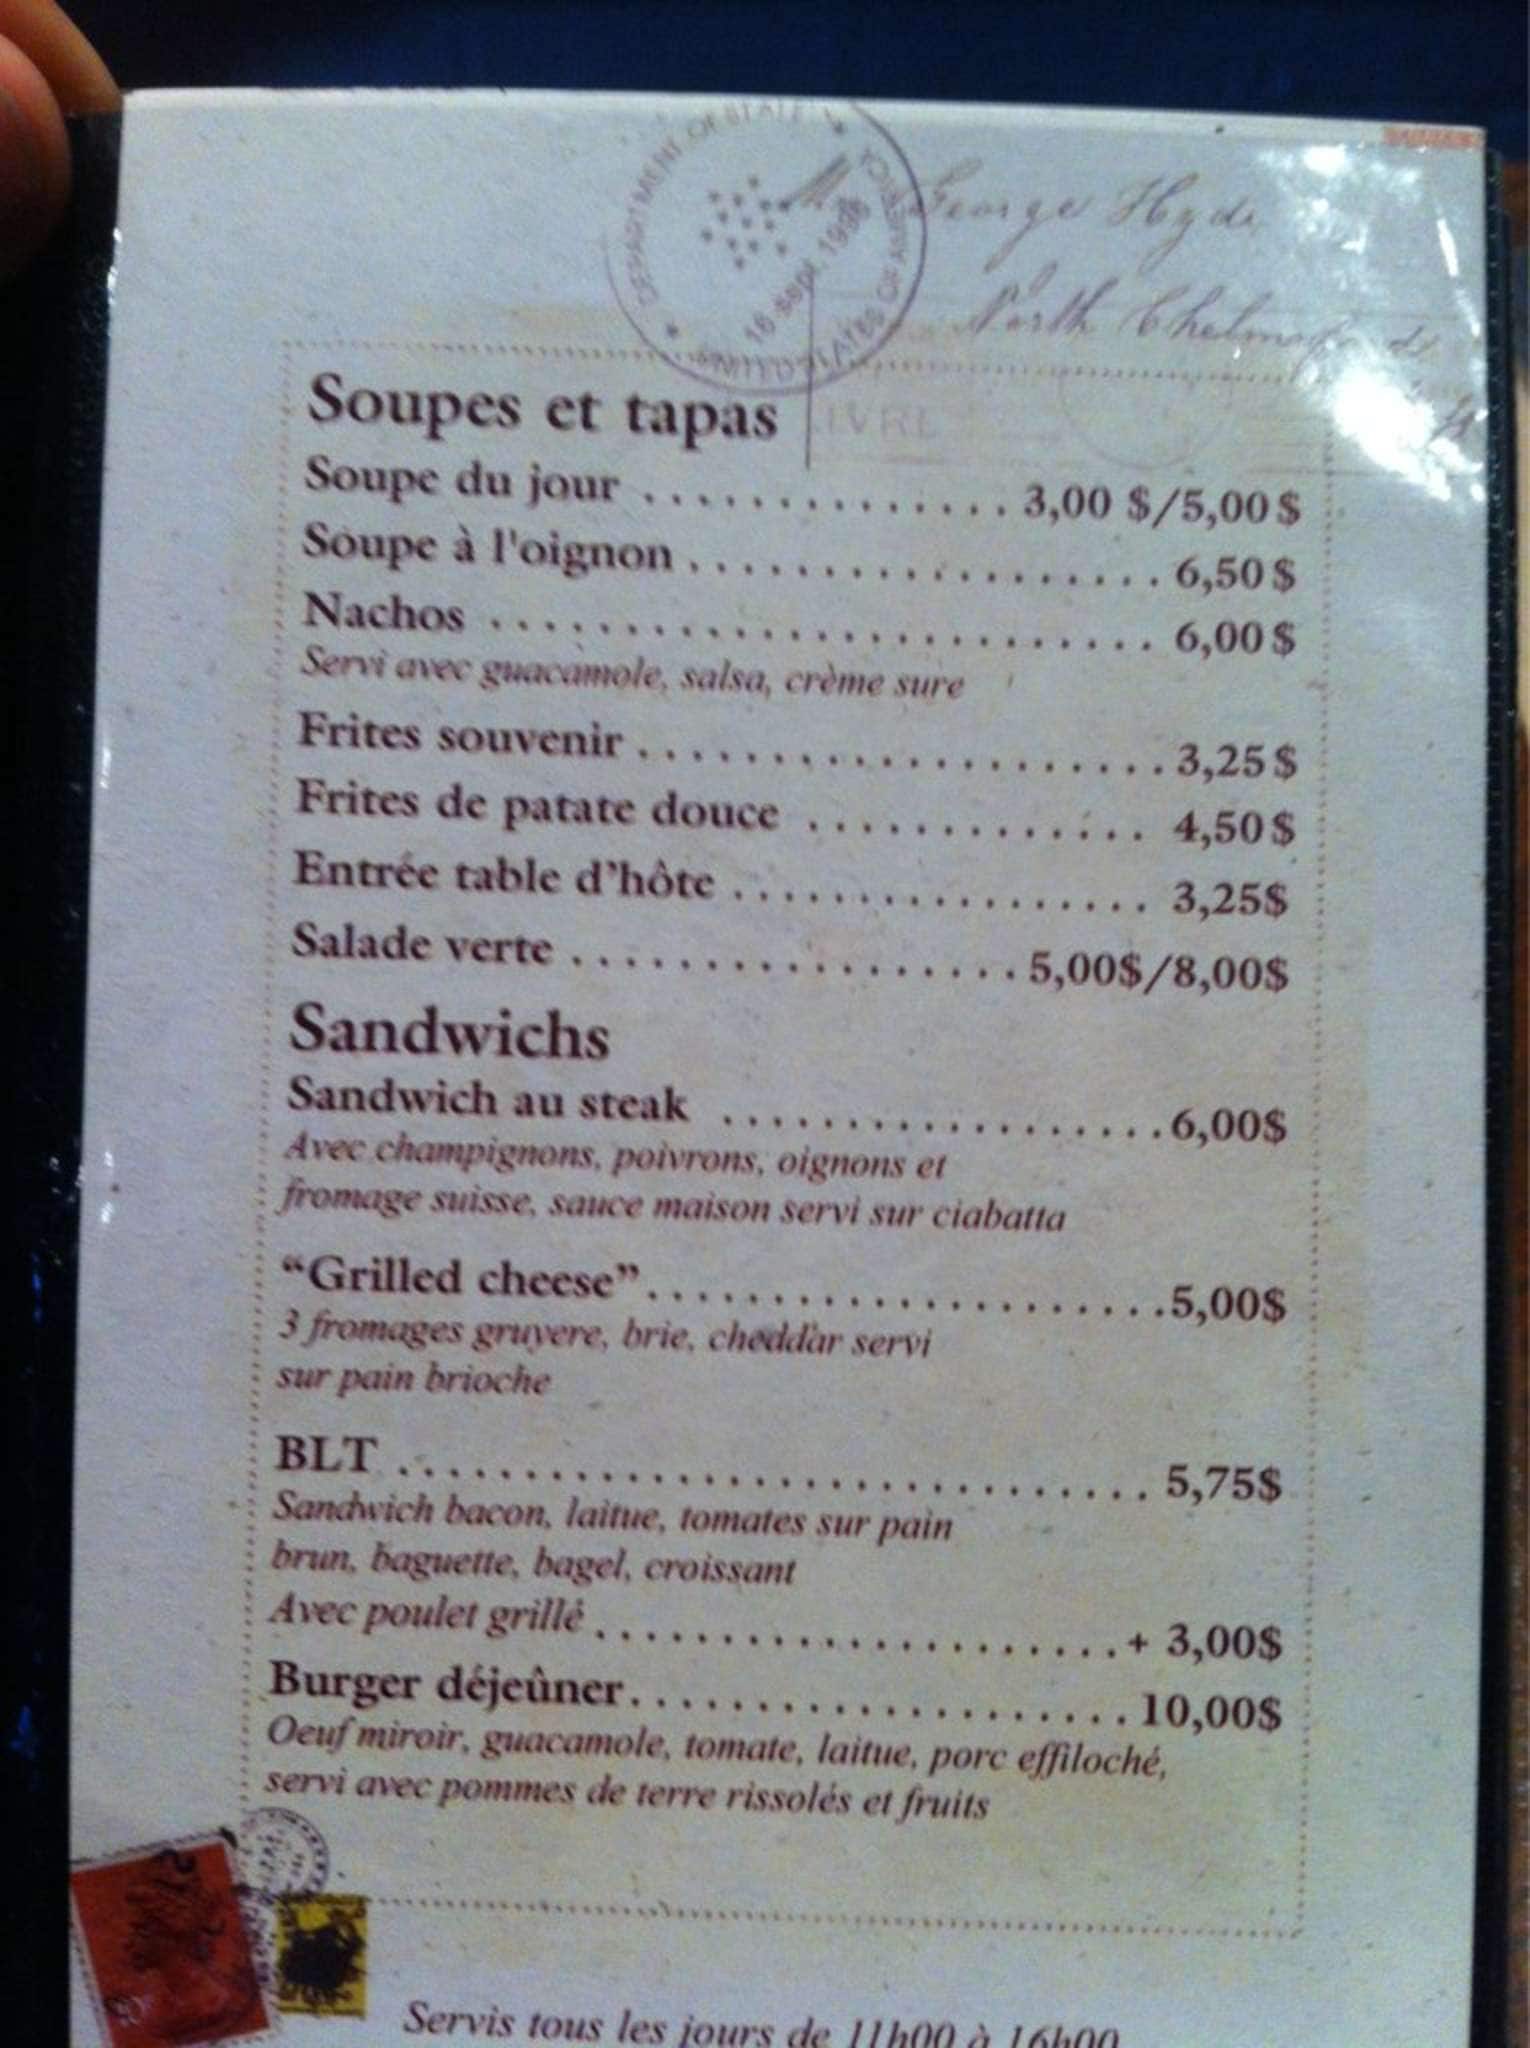 DEPARTMENT OF STATE
UNITED STATES OF AMERICA
16 sept. 1998
George Hyde
North Chelmsford
Soupes et tapas
Soupe du jour .............. 3,00 $/5,00 $
Soupe à l'oignon .................. 6,50 $
Nachos ......................... 6,00 $
Servi avec guacamole, salsa, crème sure
Frites souvenir .................... 3,25 $
Frites de patate douce ............. 4,50 $
Entrée table d'hôte ................ 3,25$
Salade verte ................. 5,00$/8,00$
Sandwichs
Sandwich au steak ................. 6,00$
Avec champignons, poivrons, oignons et
fromage suisse, sauce maison servi sur ciabatta
“Grilled cheese” .................... 5,00$
3 fromages gruyere, brie, cheddar servi
sur pain brioche
BLT ............................. 5,75$
Sandwich bacon, laitue, tomates sur pain
brun, baguette, bagel, croissant
Avec poulet grillé .................... + 3,00$
Burger déjeûner ................... 10,00$
Oeuf miroir, guacamole, tomate, laitue, porc effiloché,
servi avec pommes de terre rissolés et fruits
Servis tous les jours de 11h00 à 16h00